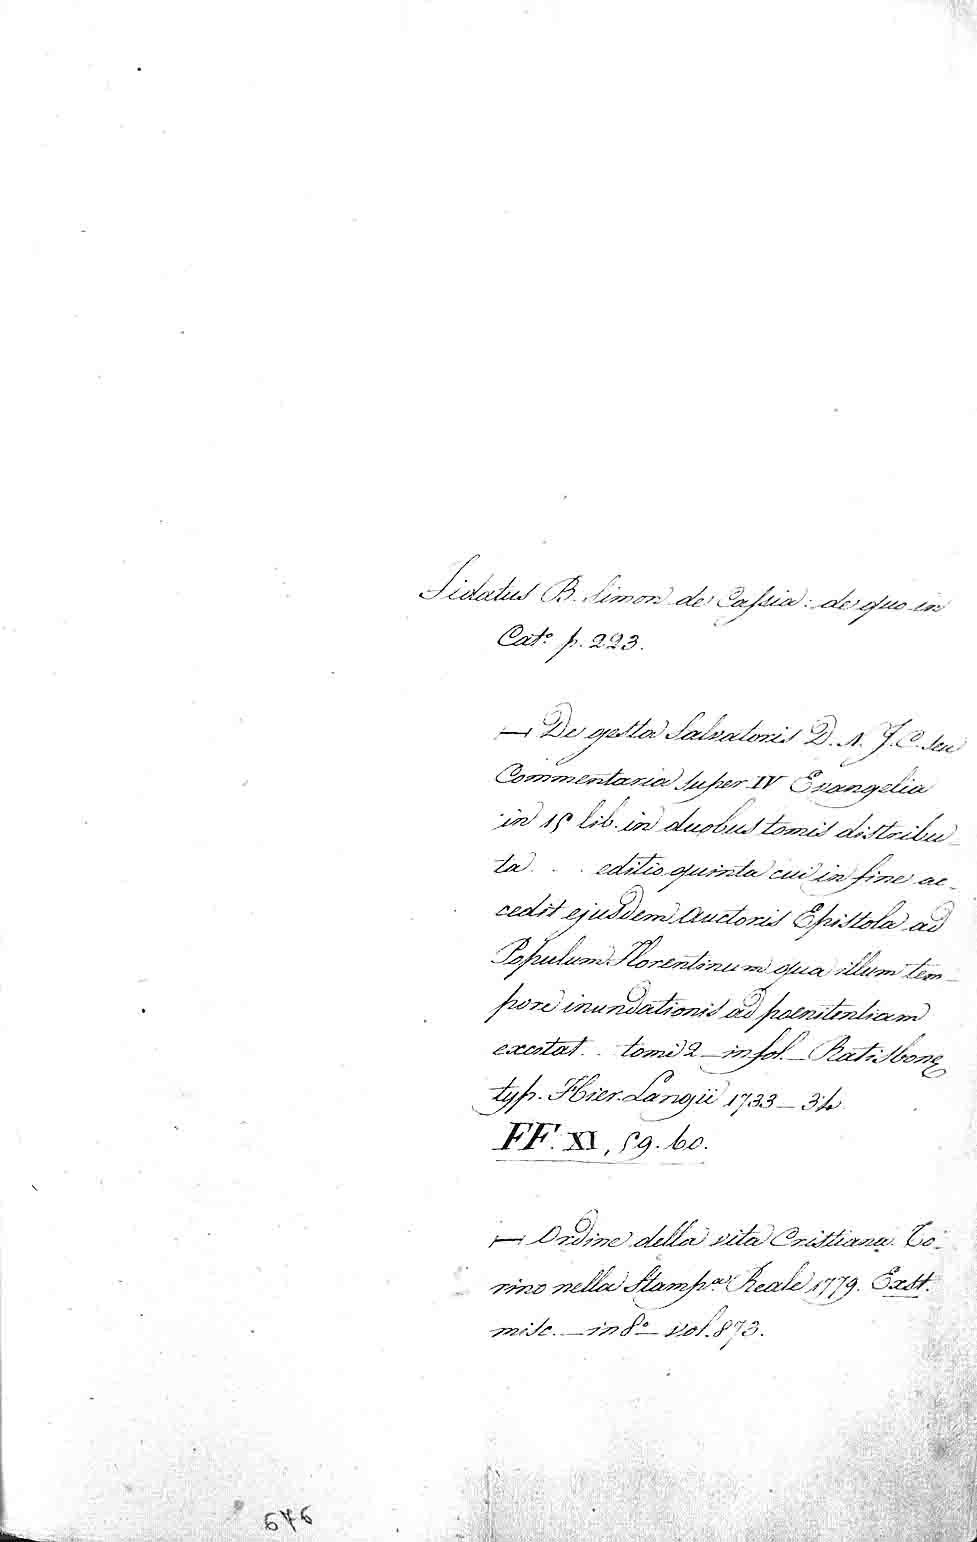 Fidatus B. Simon de Cassia: de quo in
Cat.º p. 223.
— De gesta Salvatoris D. N. J. C. seu
Commentaria super IV Evangelia
in 15 lib. in duobus tomis distribu_
ta . . . editio quinta cui in fine ac_
cedit ejusdem Auctoris Epistola ad
Populum Florentinum qua illum tem_
pore inundationis ad poenitentiam
excitat . . tomi 2 _ in fol. _ Ratisbonę
typ. Hier. Langii 1733 _ 34
FF. XI, 59. 60.
— Ordine della vita Cristiana. To_
rino nella Stamp.ª Reale 1779. Exst.
misc. _ in 8º _ vol. 873.
676